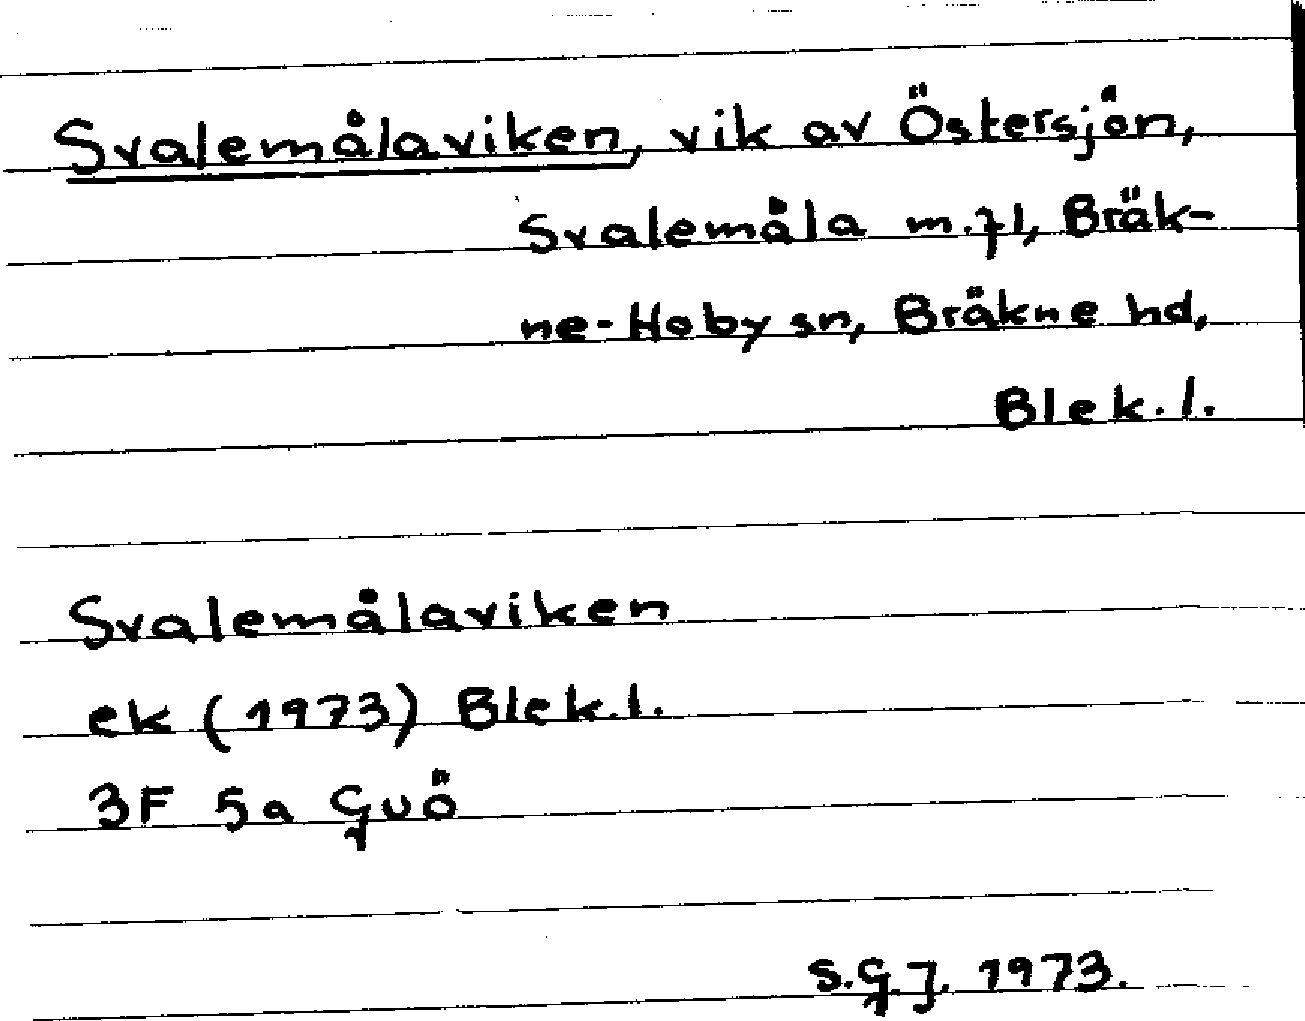 Svalemålaviken, vik av Östersjön,
Svalemåla m.fl, Bräk-
ne-Hoby sn, Bräkne hd,
Blek.l.
Svalemålaviken
ek (1973) Blek.l.
3F 5a Guö
S.G.J. 1973.